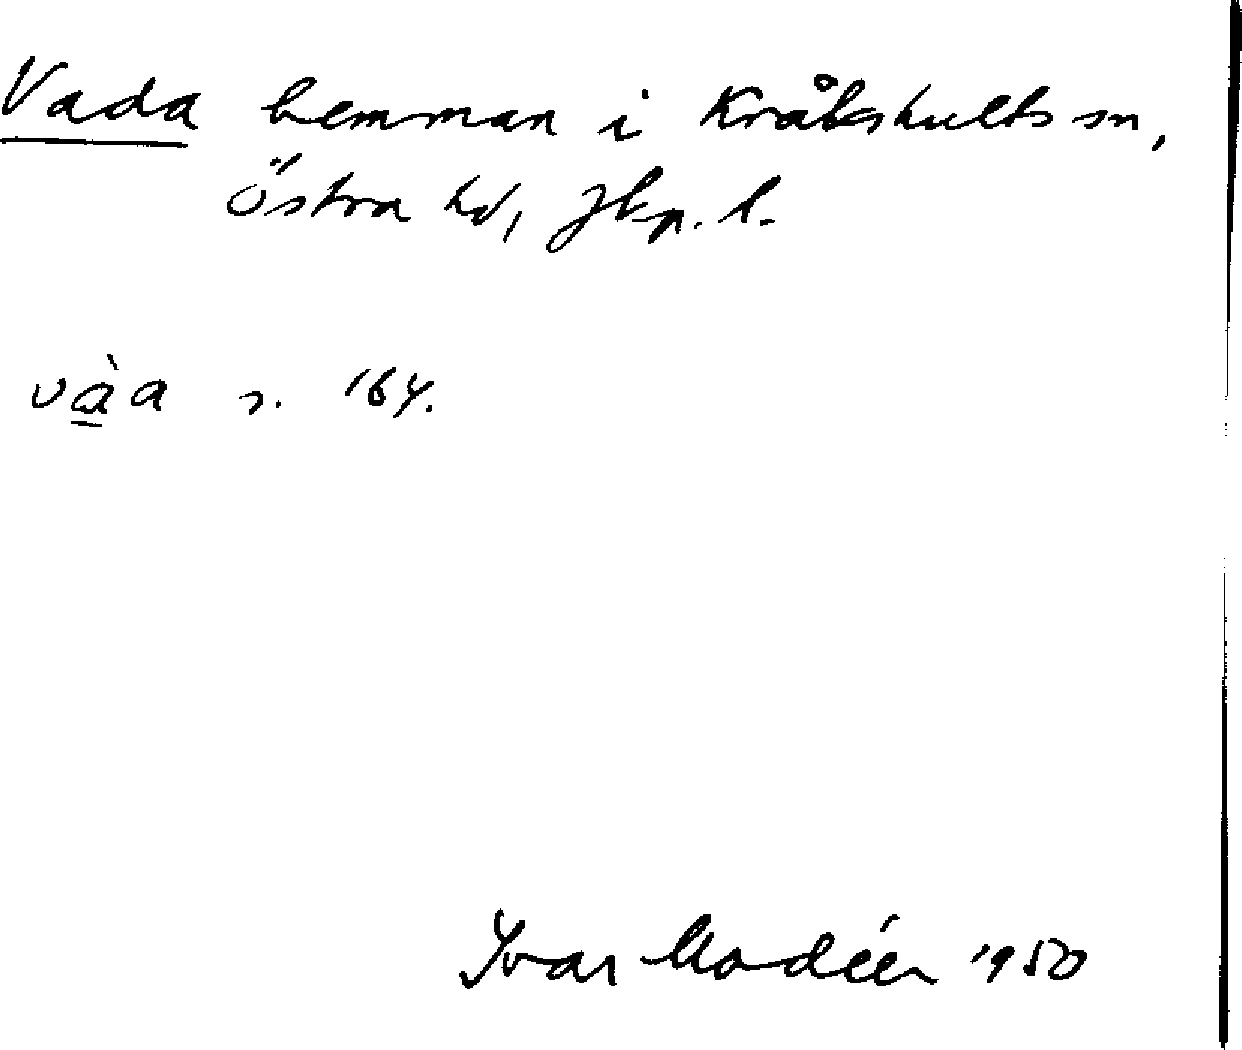 Vada hemman i Kråkshults sn,
Östra hd, Jkp. l.
vàa s. 164.
Ivar Modéer 1950